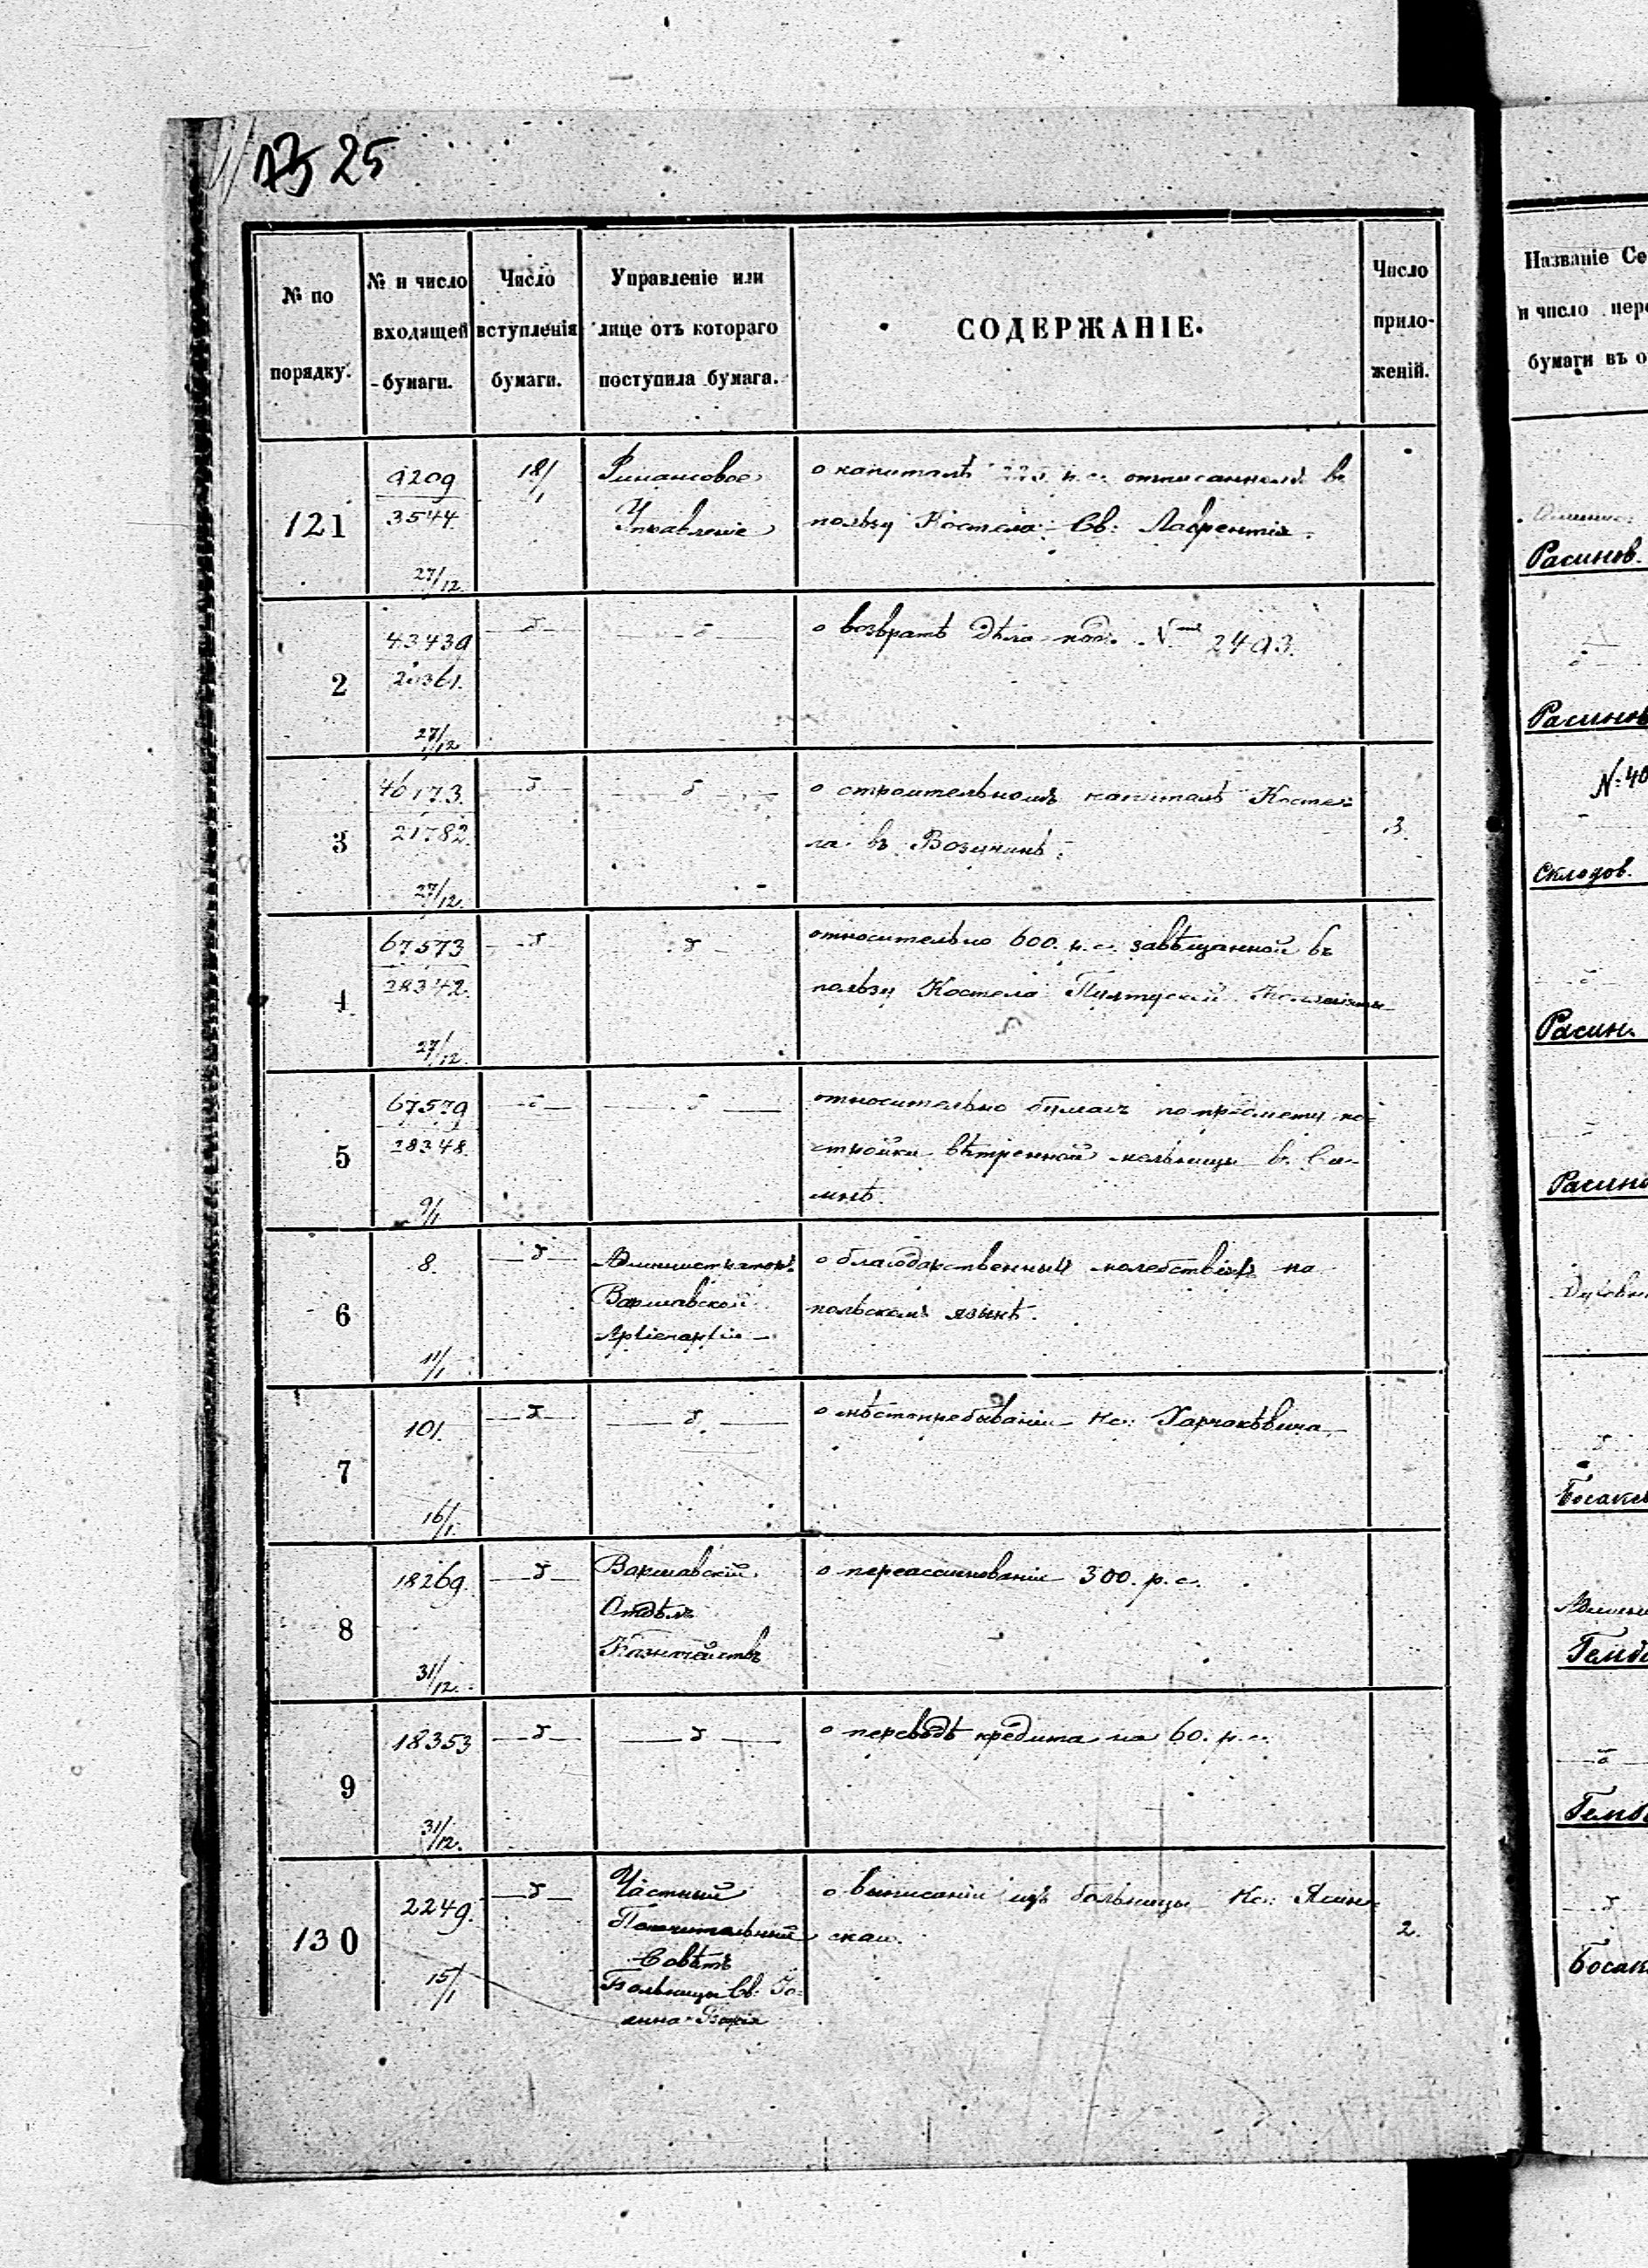 25
№ по порядку.
№ и число входящей бумаги.
Число вступленія бумаги.
Управленіе или лице отъ котораго поступила бумага.
СОДЕРЖАНІЕ.
Число приложеній.
121
9209
3544.
27/12.
18/1
Финансовое
Управленіе
о капиталѣ р. с. отписанномъ въ
пользу Костела Св: Лаврентія.
2
43439
20361.
27/12
о возвратѣ дѣла подъ № 2493.
3
46173.
21782.
27/12.
о строительномъ капиталѣ Косте=
ла въ
3.
4
67573
28342.
27/12.
относительно 600. р. с. завѣщанной въ
пользу Костела Пултуской
5
67579
28348.
9/1
относительно бумагъ по предмету по=
стройки вѣтренной мельницы въ
6
8.
11/1
Администраторъ
Варшавской
Архіепархіи
о благодарственныхъ молебствіяхъ на
польскомъ языкѣ.
7
101.
16/1.
о мѣстопребываніи Кс:
8
18269.
31/12.
Варшавскій
Отдѣлъ
Казначействъ
о переассигнованіи 300. р. с.
9
18353
31/12.
о переводѣ кредита на 60. р. с.
130
2249.
15/1
Частный
Попечительный
Совѣтъ
Больницы Св: Іо=
анна Божія
о выписаніи изъ больницы Кс: Ясин=
скаго.
2.
Названіе Се
и число пер
бумаги въ о
Расинов.
Расинов
№: 40
Склодов.
Расин.
Расино
Босаке
Гемб
Босак